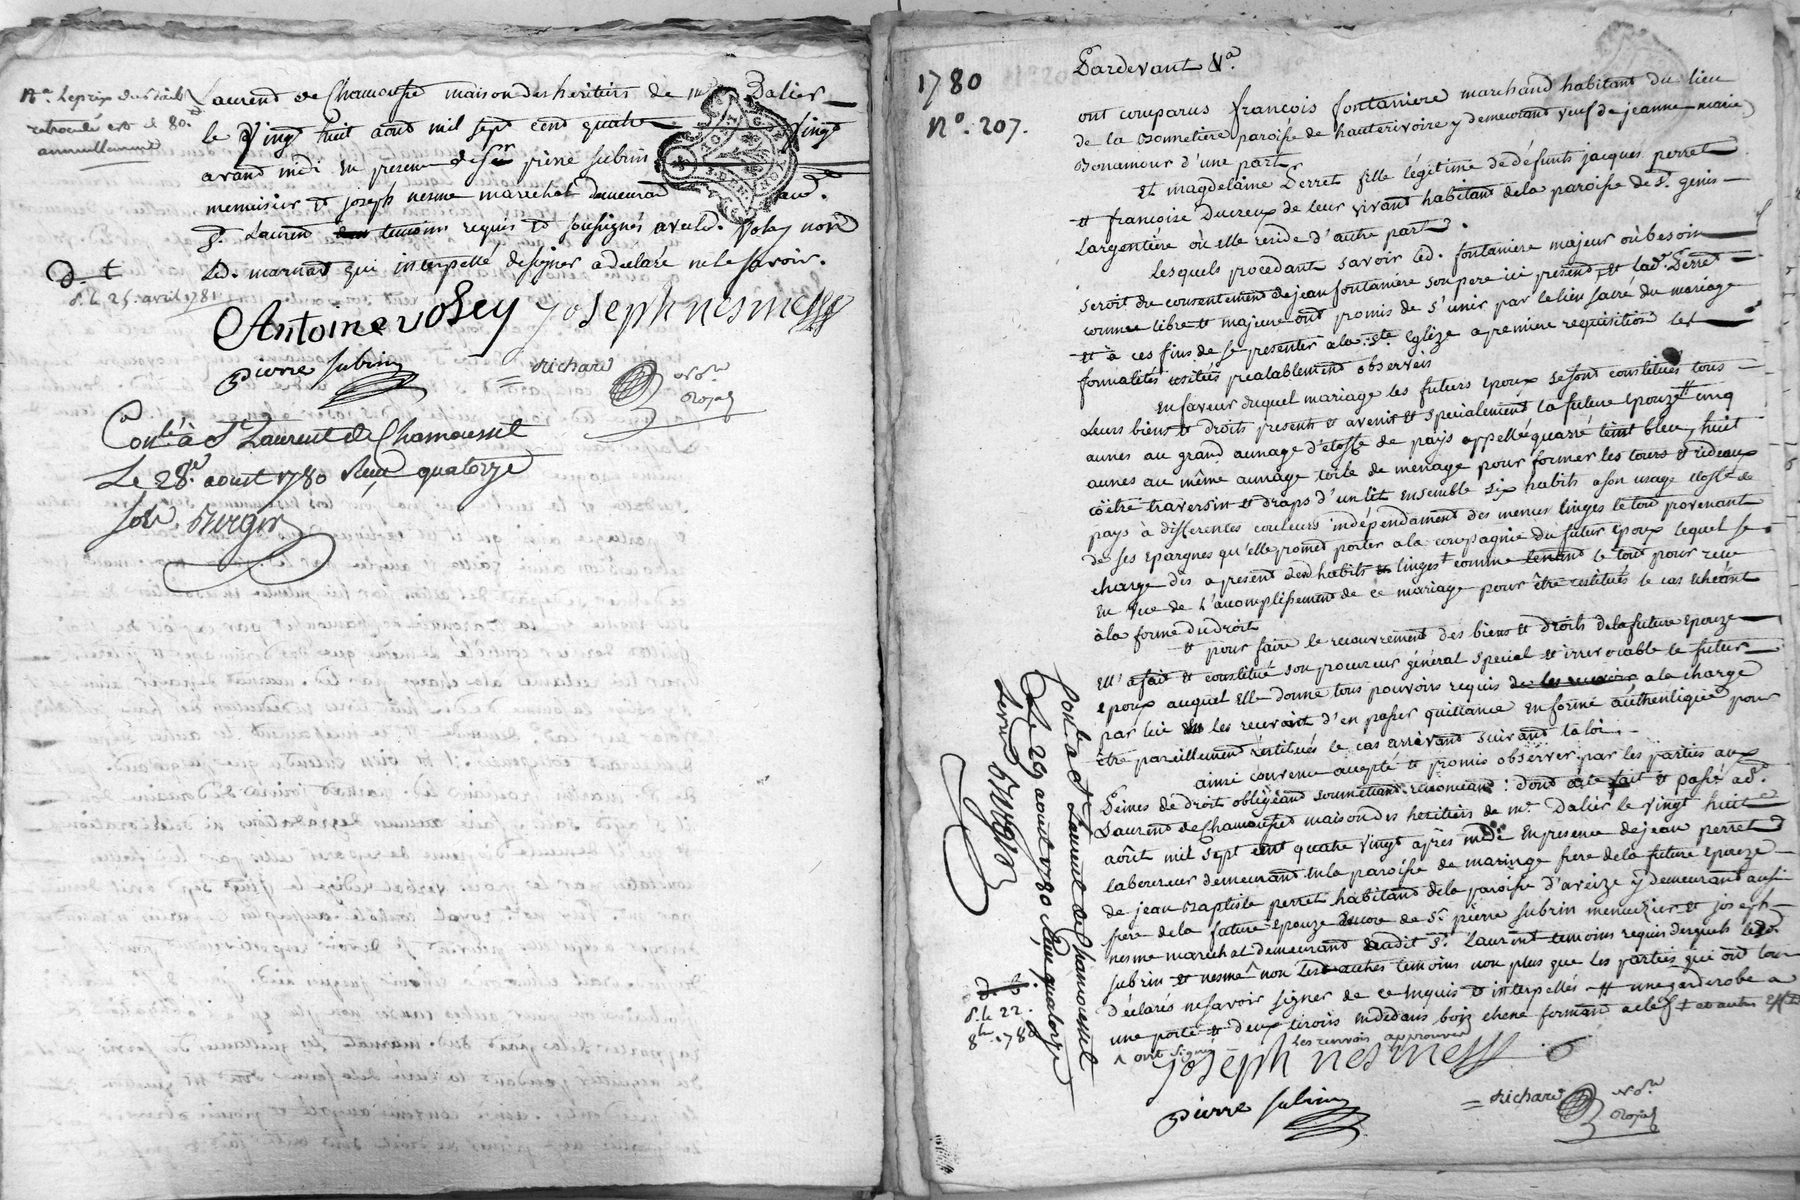 Nª. Le prix du bail
retroculé est de 80.ᵗᵗ
annuellement
Laurent de Chamousset maison des heritiers de mᵉ Dalier
le vingt huit aout mil sept cent quatre vingt
avant midi en presence de sʳ pierre subrin
menuisier et joseph nesme marechal demeurant aud.
sᵗ. Laurent temoins requis et soussignés avec led. Voley non
led. marnand qui interpellé de signer a declaré ne le savoir.
d. t
d. le 25. avril 1781
Antoine voley joseph nesme
pierre subrin
richard Nore. Royal
Conlé. à St Laurent de Chamousset
Le 28e. aoust 1780 Reçu quatorze
sols. Berger
1780
Nº. 207.
Pardevant &ª.
ont comparus françois fontaniere marchand habitant du lieu
de la Bonnetiere paroisse de hauterivoire y demeurant veuf de jeanne marie
Bonamour d'une part
Et magdelaine Perret fille légitime de défunts jacques perret
et françoise Ducreux de leur vivant habitant de la paroisse de sᵗ. genis
Largentiere où elle reside d'autre part.
Lesquels procedant savoir led. fontaniere majeur où besoin
seroit du consentement de jean fontaniere son pere ici present, et lad. Perret
comme libre et majeure ont promis de s'unir par le lien sacré du mariage
et à ces fins de se presenter a la ste Eglize a premiere requisition les
formalités usitées prealablement observées
En faveur duquel mariage les futurs Epoux se sont constitués tous
Leurs biens et droits presents et avenir et specialement la future Epouze cinq
aunes au grand aunage d'étoffe de pays appellé quarré teint bleu, huit
aunes au même aunage toile de menage pour former les tours et rideaux
coëtre traversin et draps d'un lit ensemble six habits a son usage étoffe de
pays à differentes couleurs indépendament des menus linges le tout provenant
de ses epargnes qu'elle promet porter a la compagnie du futur Epoux lequel se
charge dès a present desd habits et linges comme tenant le tout pour reçu
En vue de l'acomplissement de ce mariage pour être restitués le cas écheant
à la forme du droit
et pour faire le recouvrement des biens et droits de la future Epouze
Ell' a fait et constitué son procureur général special et irrevocable le futur
epoux auquel Elle donne tous pouvoirs requis de les recevoir a la charge
par lui en les recevant d'en passer quittance en forme authentique pour
Etre pareillement restitués le cas arrivant suivant la loi.
ainsi convenu accepté et promis observer par les parties aux
Peines de droit obligeant soumettant renonceant: dont acte fait et passé a Sᵗ.
Laurent de Chamousset maison des heritiers de mᵉ. Dalier le vingt huit
aoüt mil sept cent quatre vingt après midi En presence de jean perret
laboureur demeurant en la paroisse de maringe frere de la future epouze
de jean Baptiste perret habitant de la paroisse d'aveize y demeurant aussi
frere de la future epouze encore de sʳ. pierre subrin menuizier et joseph
nesme marechal demeurant audit Sᵗ. Laurent temoins requis desquels lesd.
subrin et nesme non les autres temoins non plus que les parties qui ont tous
déclarés ne savoir signer de ce enquis et interpellés et une garderobe a
une porte et deux tiroirs en dedans boiz chene fermant a clef et autres effets
ont signé
Les renvois approuvés
joseph nesme
pierre subrin
richard Nore. Royal
Conlé. a St Laurent de Chamousset
Le 29 aoust 1780 Reçu quatorze
sols Berger
d. le 22.
8bre. 1780